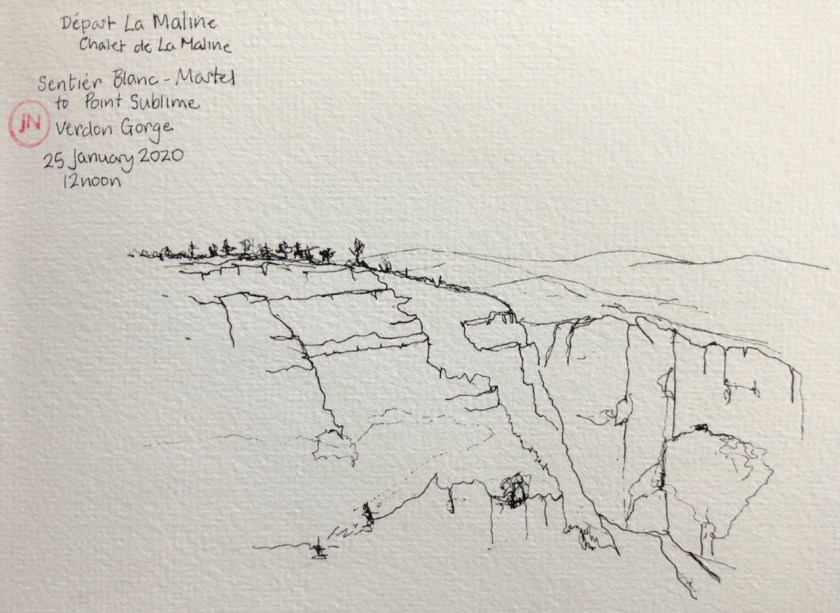 Départ La Maline
Chalet de La Maline
Sentier Blanc-Martel
to Point Sublime
JN
Verdon Gorge
25 January 2020
12noon